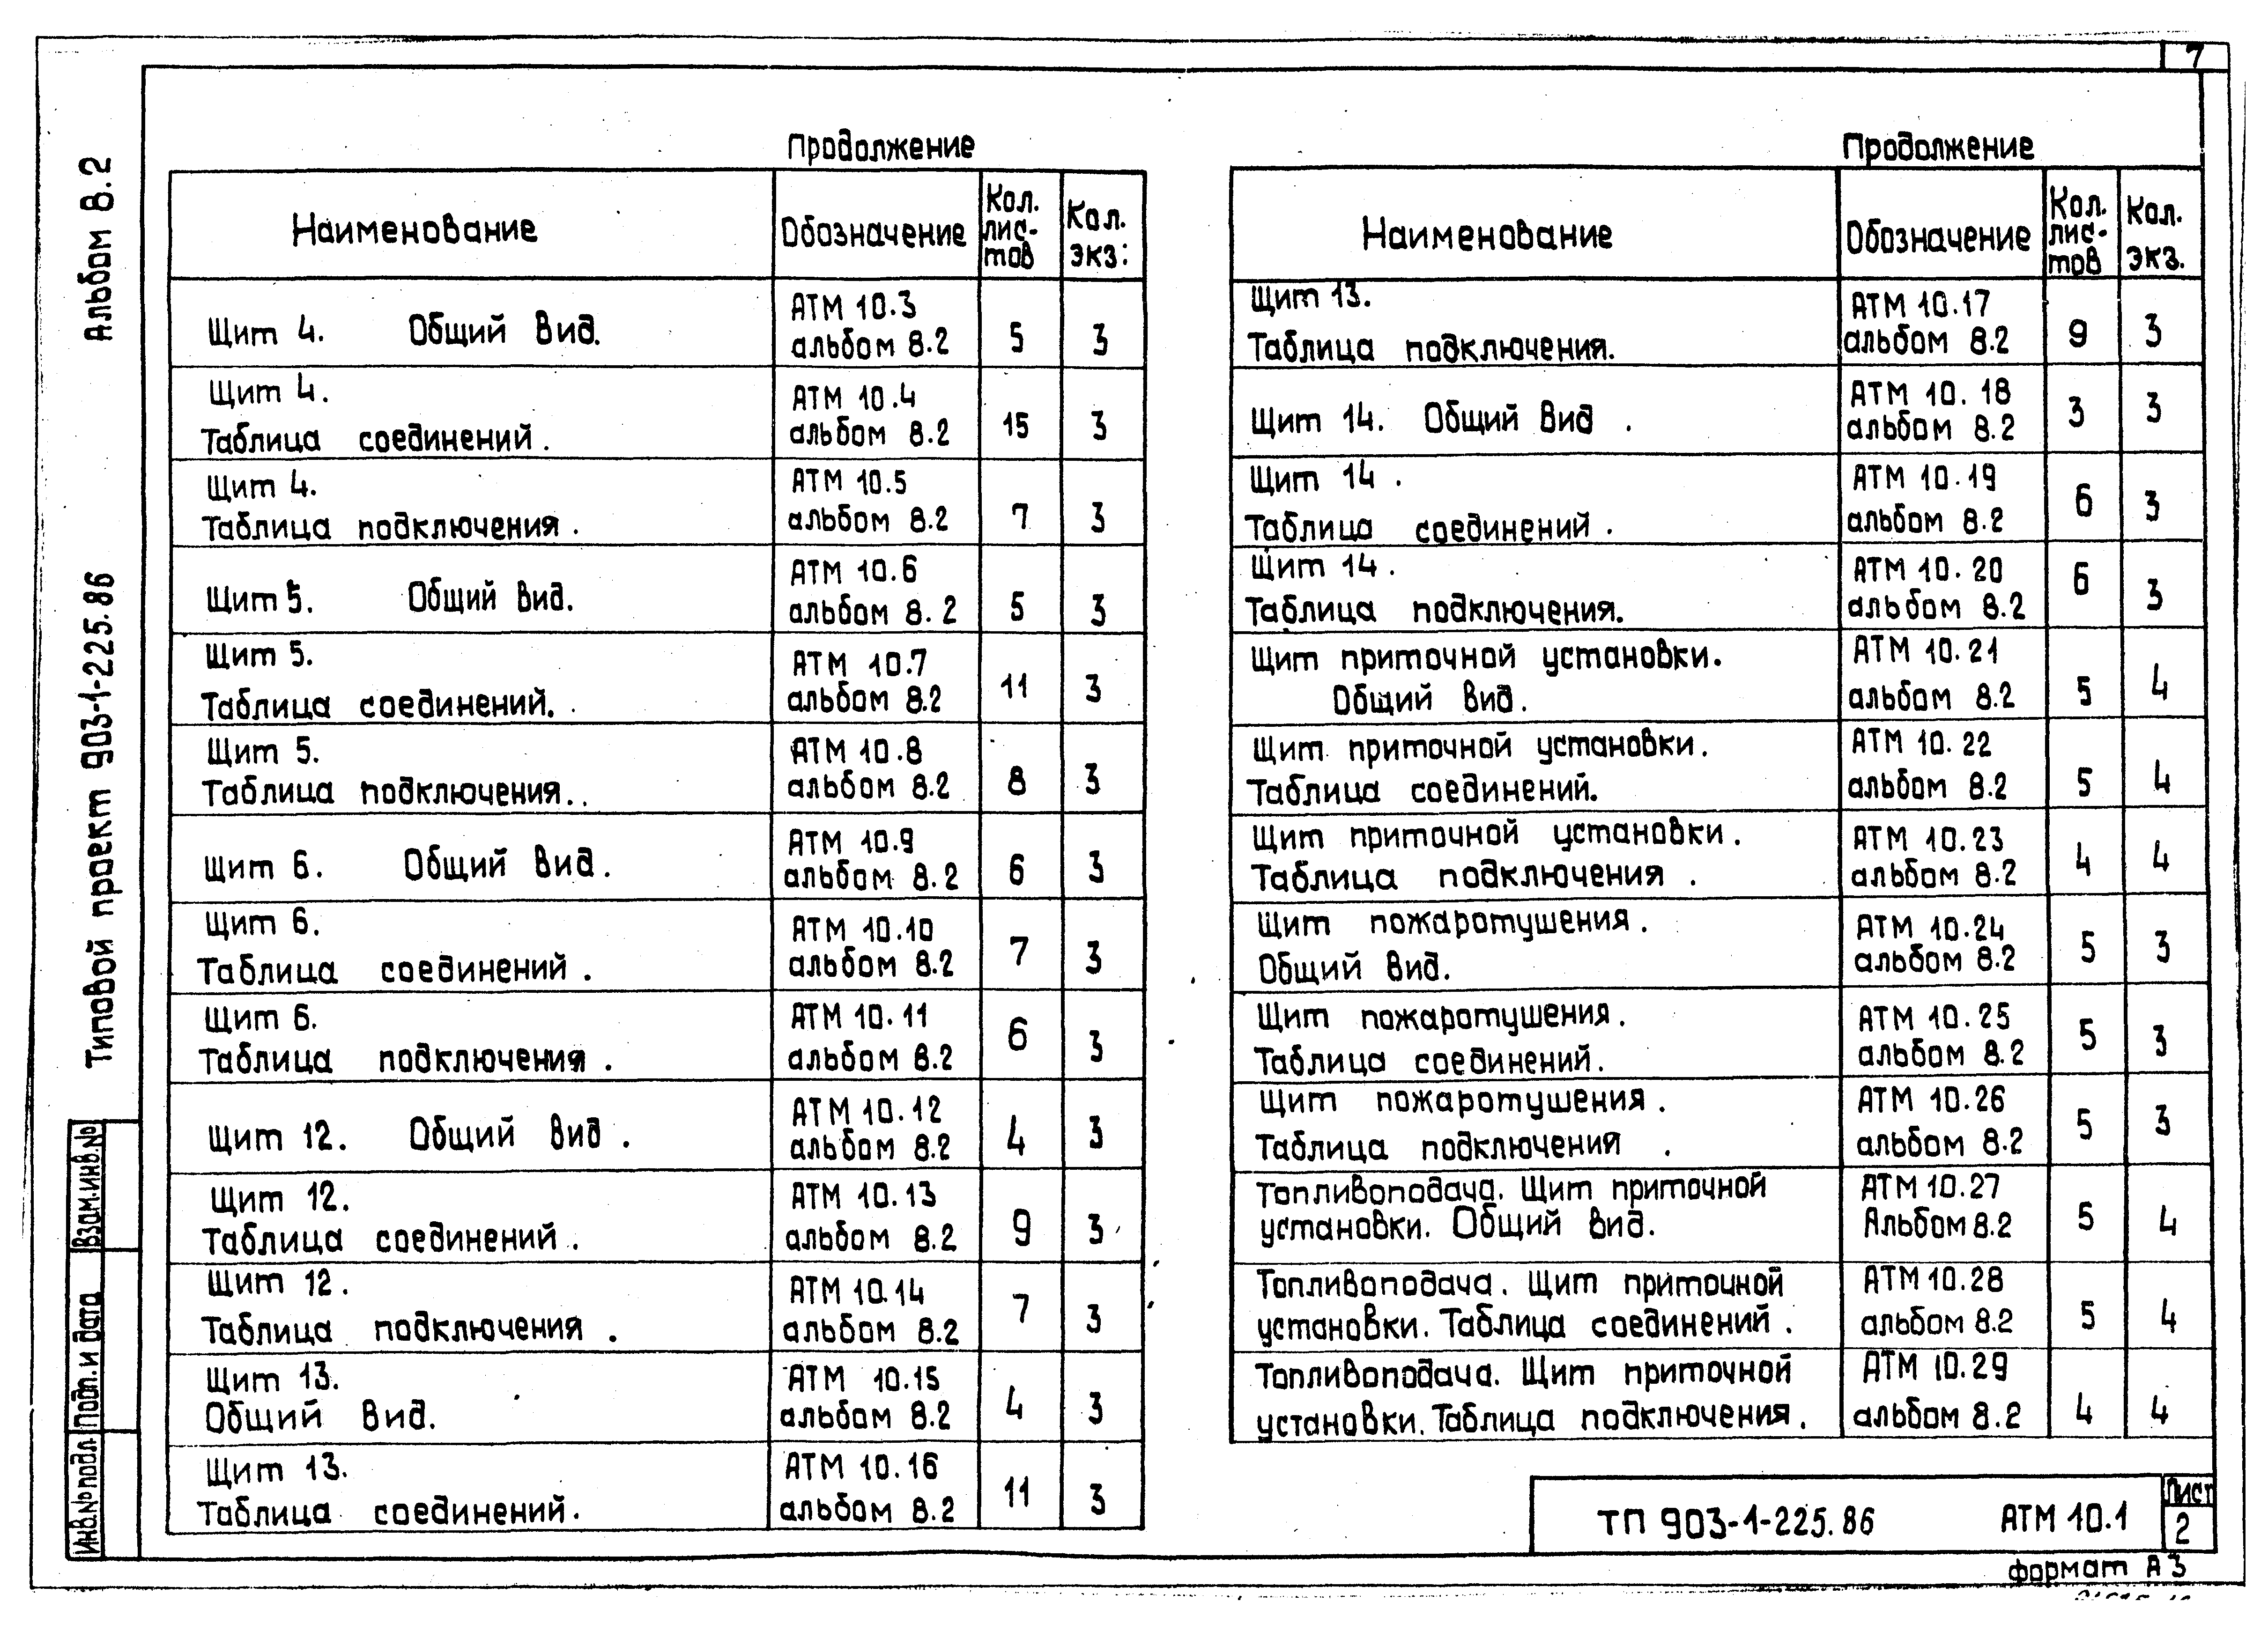 7
Альбом 8.2
Типовой проект 903-1-225.86
Взам.инв.№
Подп. и дата
Инв.№ подл.
Продолжение
Наименование
Обозначение
Кол. лис- тов
Кол. экз.
Щит 4. Общий вид.
АТМ 10.3
альбом 8.2
5
3
Щит 4.
Таблица соединений.
АТМ 10.4
альбом 8.2
15
3
Щит 4.
Таблица подключения.
АТМ 10.5
альбом 8.2
7
3
Щит 5. Общий вид.
АТМ 10.6
альбом 8.2
5
3
Щит 5.
Таблица соединений.
АТМ 10.7
альбом 8.2
11
3
Щит 5.
Таблица подключения..
АТМ 10.8
альбом 8.2
8
3
Щит 6. Общий вид.
АТМ 10.9
альбом 8.2
6
3
Щит 6.
Таблица соединений.
АТМ 10.10
альбом 8.2
7
3
Щит 6.
Таблица подключения.
АТМ 10.11
альбом 8.2
6
3
Щит 12. Общий вид.
АТМ 10.12
альбом 8.2
4
3
Щит 12.
Таблица соединений.
АТМ 10.13
альбом 8.2
9
3
Щит 12.
Таблица подключения.
АТМ 10.14
альбом 8.2
7
3
Щит 13.
Общий вид.
АТМ 10.15
альбом 8.2
4
3
Щит 13.
Таблица соединений.
АТМ 10.16
альбом 8.2
11
3
Продолжение
Наименование
Обозначение
Кол. лис- тов
Кол. экз.
Щит 13.
Таблица подключения.
АТМ 10.17
альбом 8.2
9
3
Щит 14. Общий вид.
АТМ 10.18
альбом 8.2
3
3
Щит 14.
Таблица соединений.
АТМ 10.19
альбом 8.2
6
3
Щит 14.
Таблица подключения.
АТМ 10.20
альбом 8.2
6
3
Щит приточной установки.
Общий вид.
АТМ 10.21
альбом 8.2
5
4
Щит приточной установки.
Таблица соединений.
АТМ 10.22
альбом 8.2
5
4
Щит приточной установки.
Таблица подключения.
АТМ 10.23
альбом 8.2
4
4
Щит пожаротушения.
Общий вид.
АТМ 10.24
альбом 8.2
5
3
Щит пожаротушения.
Таблица соединений.
АТМ 10.25
альбом 8.2
5
3
Щит пожаротушения.
Таблица подключения.
АТМ 10.26
альбом 8.2
5
3
Топливоподача. Щит приточной
установки. Общий вид.
АТМ 10.27
Альбом 8.2
5
4
Топливоподача. Щит приточной
установки. Таблица соединений.
АТМ 10.28
альбом 8.2
5
4
Топливоподача. Щит приточной
установки. Таблица подключения.
АТМ 10.29
альбом 8.2
4
4
ТП 903-1-225.86 АТМ 10.1
Лист
2
формат А3